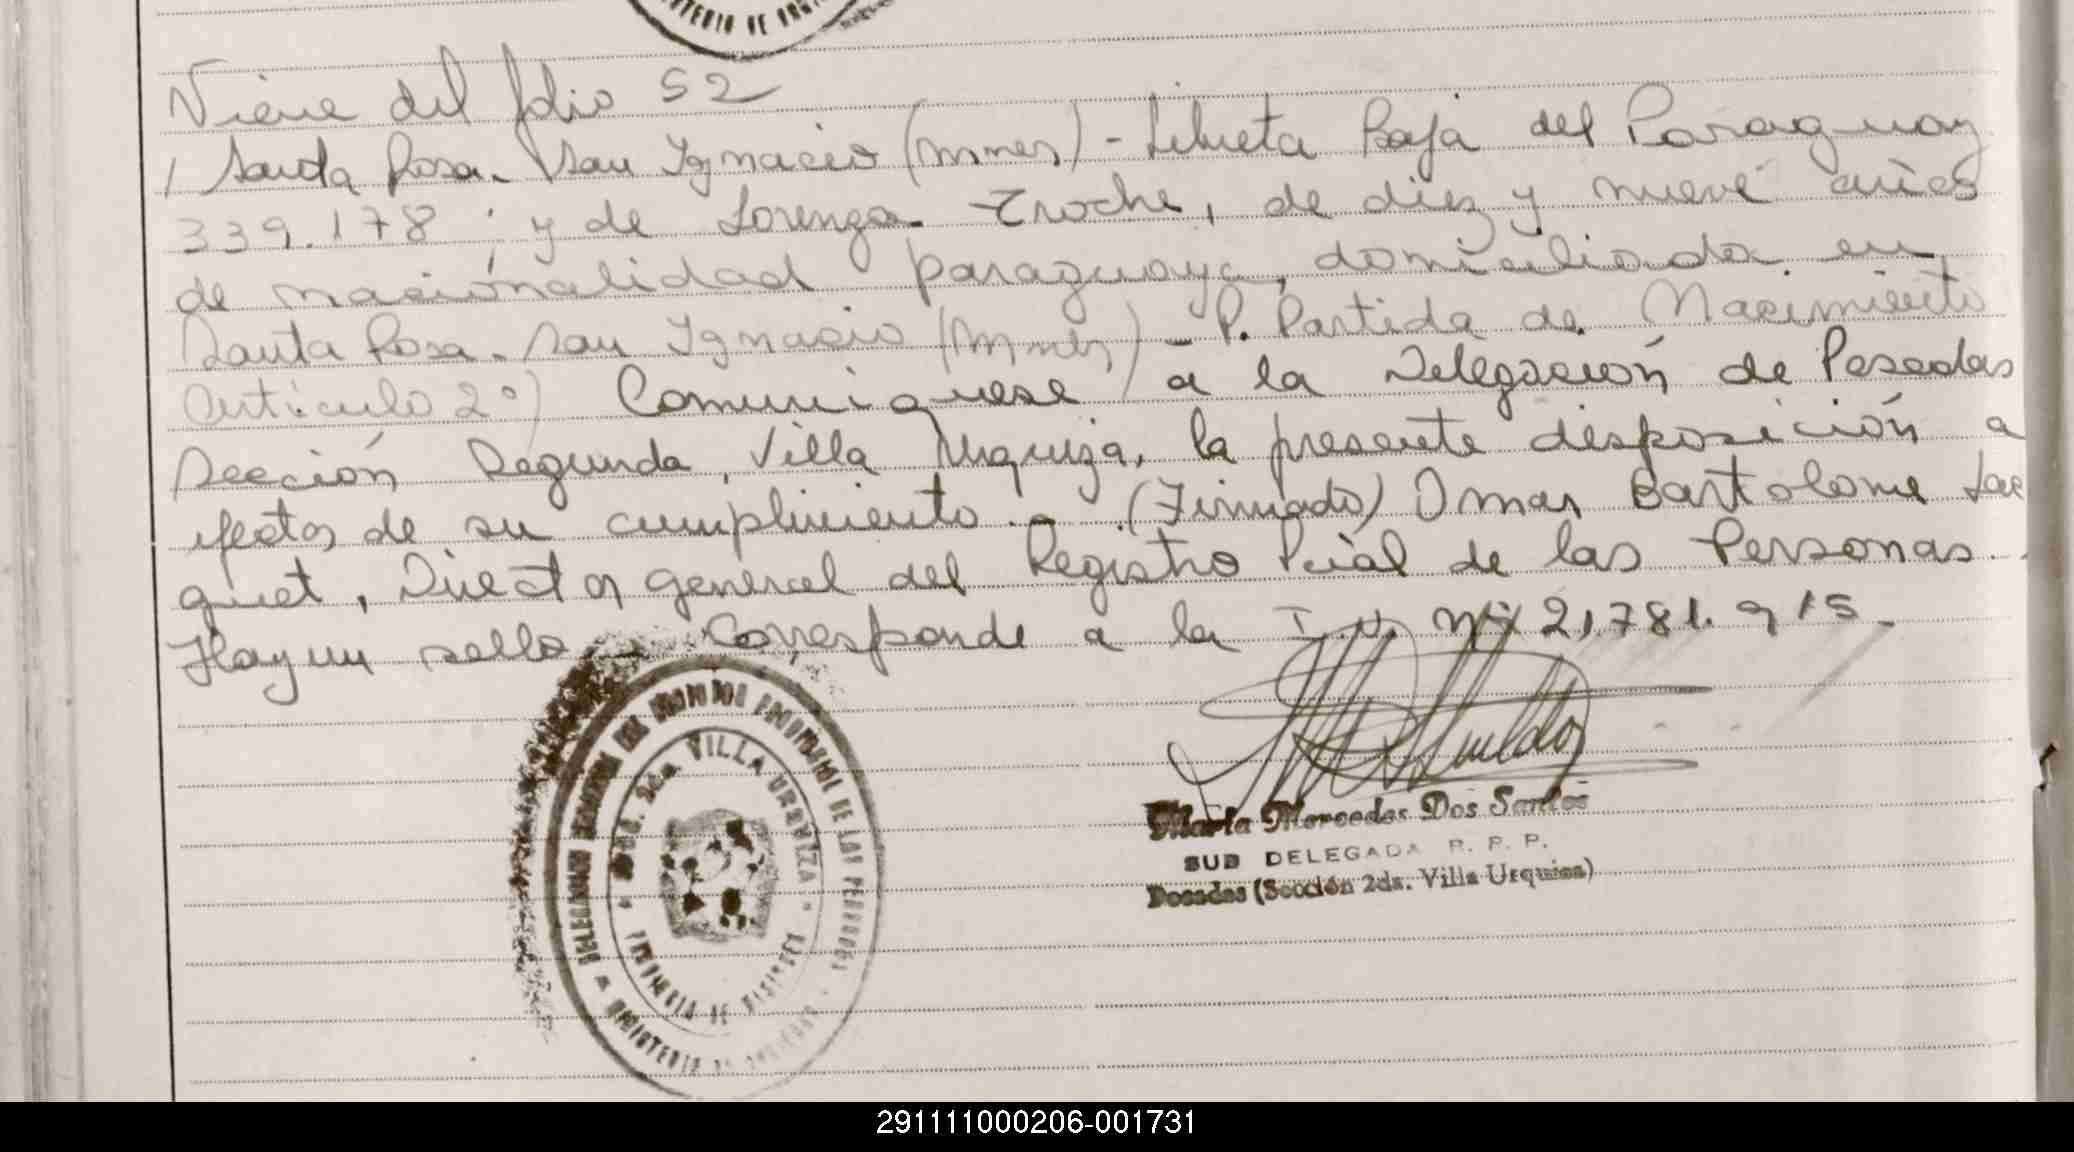 Viene del folio 52
/ Santa Rosa. San Ignacio (Mnes) - Libreta Baja del Paraguay
339.178; y de Lorenza Troche, de diez y nueve años
de nacionalidad paraguaya, domiciliada en
Santa Rosa. San Ignacio (Mnes) - P. Partida de Nacimiento
Artículo 2º) Comuniquese a la Delegación de Posadas
Sección Segunda, Villa Urquiza, la presente disposición a
efectos de su cumplimiento. - (Firmado) Omar Bartolome Jac
quet, Director general del Registro Pcial de las Personas.
Hay un sello - Corresponde a la I.D. Nº 21,781.915.
VILLA URQUIZA
PROVINCIA DE MISIONES
DE LAS PERSONAS
MINISTERIO DE GOBIERNO
Maria Mercedes Dos Santos
SUB DELEGADA R. P. P.
Posadas (Sección 2da. Villa Urquiza)
291111000206-001731